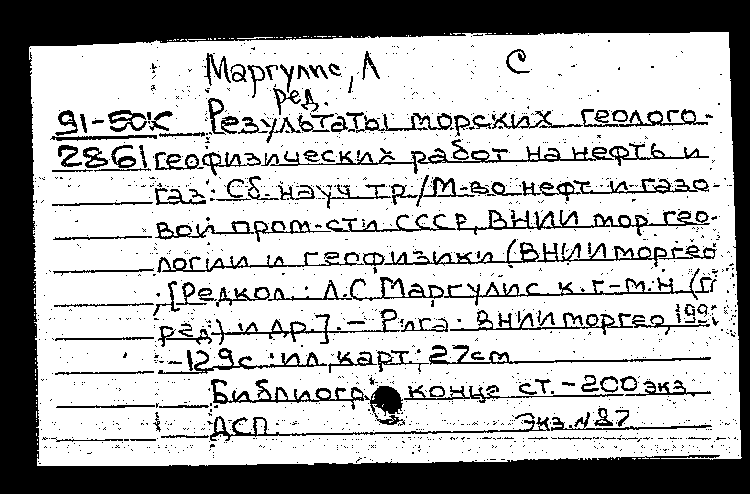 Маргулис, Л С
ред.
91-50К Результаты морских геолого-
2861 геофизических работ на нефть и
газ: Сб. науч тр./М-во нефт. и газо-
вой пром-сти СССР, ВНИИ мор гео-
логии и геофизики (ВНИИморгео
; [Редкол.: Л.С Маргулис к.г-м.н (г
ред.) и др.]. - Рига: ВНИИморгео, 199
-129с.:ил, карт.; 27см
Библиогр конце ст. - 200 экз.
ДСП. Экз. №87